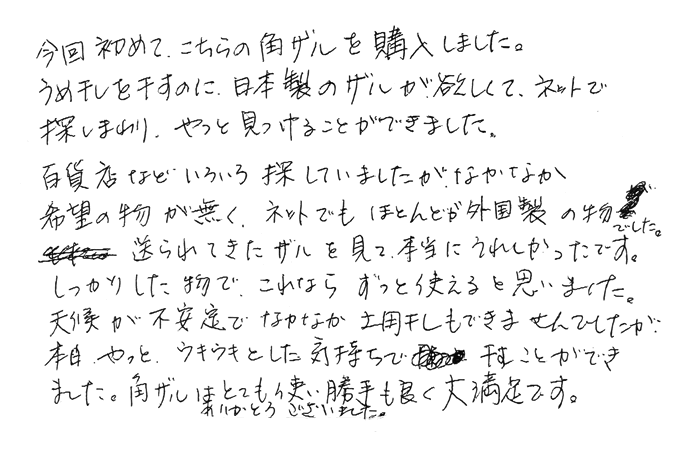 今回初めて、こちらの角ザルを購入しました。
うめ干しを干すのに、日本製のザルが欲しくて、ネットで
探しまわり、やっと見つけることができました。
百貨店などいろいろ探していましたが、なかなか
希望の物が無く、ネットでもほとんどが外国製の物
でした。
送られてきたザルを見て、本当にうれしかったです。
しっかりした物で、これならずっと使えると思いました。
天候が不安定でなかなか土用干しもできませんでしたが、
本日、やっと、ウキウキとした気持ちで干すことができ
ました。角ザルはとても使い勝手も良く大満足です。
ありがとうございました。